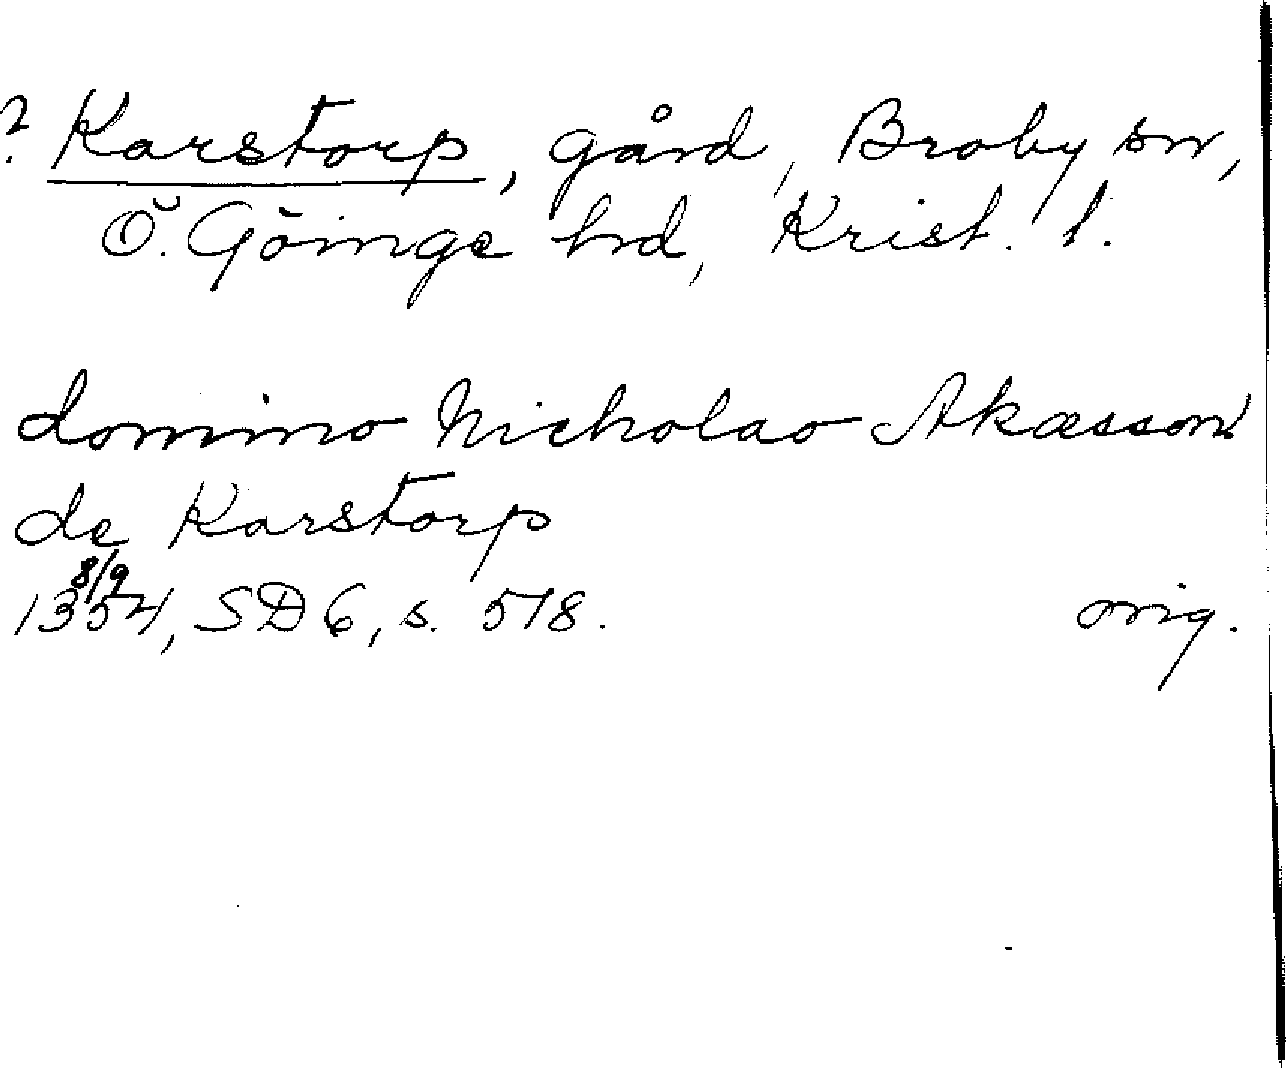 ? Karstorp, gård, Broby sn,
Ö. Göinge hd, Krist. l.
domino Nicholao Akæsson
de Karstorp
8/9
1354, SD 6, s. 518.
orig.